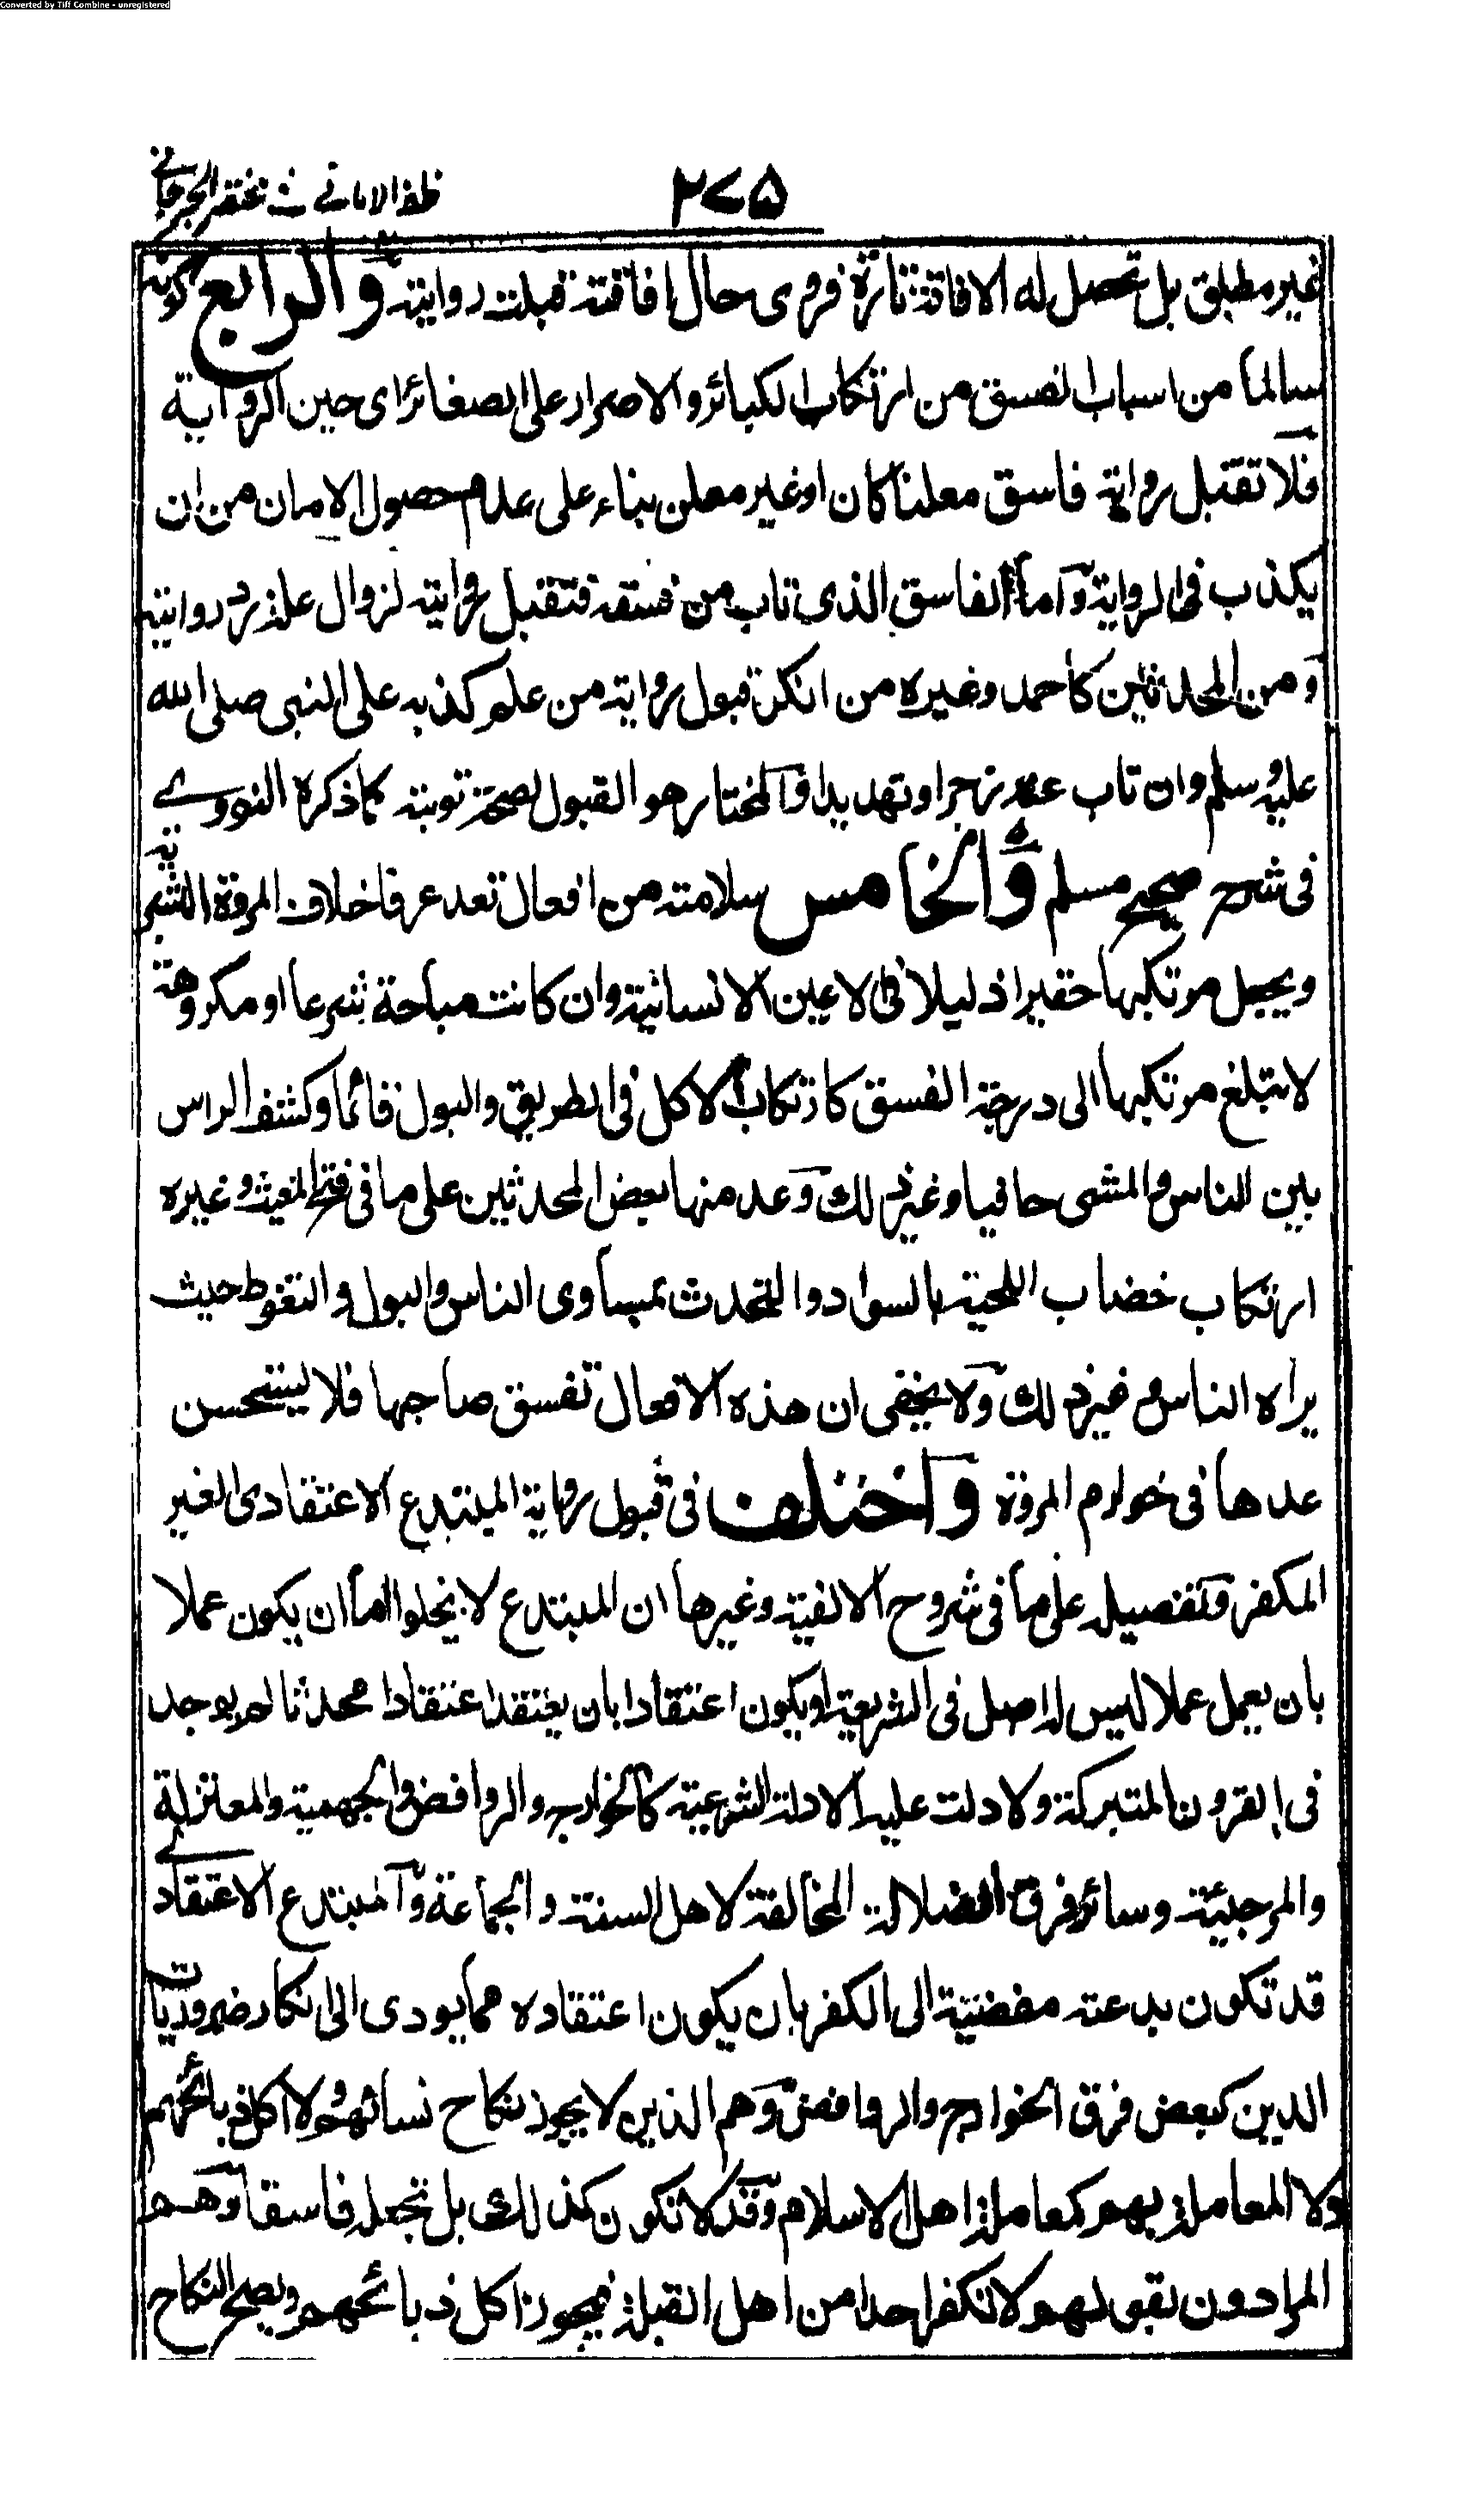 Converted by Tiff Combine - unregistered
ظفر الامانی فی مختصر الجرجانی
۲۷۵
غير مطبق بل تحصل له الافاقة تارة فروى حال افاقته قبلت روايته والرابع كونه
سالما من اسباب الفسق من ارتكاب الكبائر والاصرار على الصغائر اى حين الرواية
فلا تقبل رواية فاسق معلنا كان او غير معلن بناء على عدم حصول الامان من ان
يكذب فى الرواية واما الفاسق الذى تاب من فسقه فتقبل روايته لزوال علة رد روايته
ومن المحدثين كاحمد وغيره من انكر قبول رواية من علم كذبه على النبى صلى الله
عليه وسلم وان تاب عنه زجرا وتهديدا والمختار هو القبول لصحة توبته كما ذكره النووى
فى شرح صحيح مسلم والخامس سلامته من افعال تعد عرفا خلاف المروة الشرعية
ويجعل مرتكبها حقيرا ذليلا فى الاعين الانسانية وان كانت مباحة شرعا او مكروهة
لا تبلغ مرتكبها الى درجة الفسق كارتكاب الاكل فى الطريق والبول قائما وكشف الراس
بين الناس والمشى حافيا وغير ذلك وعد منها بعض المحدثين على ما فى فتح المغيث وغيره
ارتكاب خضاب اللحية بالسواد والتحدث بمساوى الناس والبول والتغوط حيث
يراه الناس وغير ذلك ولا يخفى ان هذه الافعال تفسق صاحبها فلا يستحسن
عدها فى خوارم المروة واختلف فى قبول رواية المبتدع الاعتقادى الغير
المكفر وتفصيله على ما فى شروح الالفية وغيرها ان المبتدع لا يخلوا اما ان يكون عملا
بان يعمل عملا ليس له اصل فى الشريعة او يكون اعتقادا بان يعتقد اعتقادا محدثا لم يوجد
فى القرون المتبركة ولا دلت عليه الادلة الشرعية كالخوارج والروافض والجهمية والمعتزلة
والمرجئية وسائر فرق الضلالة المخالفة لاهل السنة والجماعة والمبتدع الاعتقادى
قد تكون بدعته مفضية الى الكفر بان يكون اعتقاده مما يودى الى انكار ضروريات
الدين كبعض فرق الخوارج والروافض وهم الذين لا يجوز نكاح نسائهم ولا اكل ذبائحهم
ولا المعاملة بهم كمعاملة اهل الاسلام وقد لا تكون كذلك بل تجعله فاسقا وهم
المرادون بقولهم لا نكفر احدا من اهل القبلة فيجوز اكل ذبائحهم ويصح النكاح